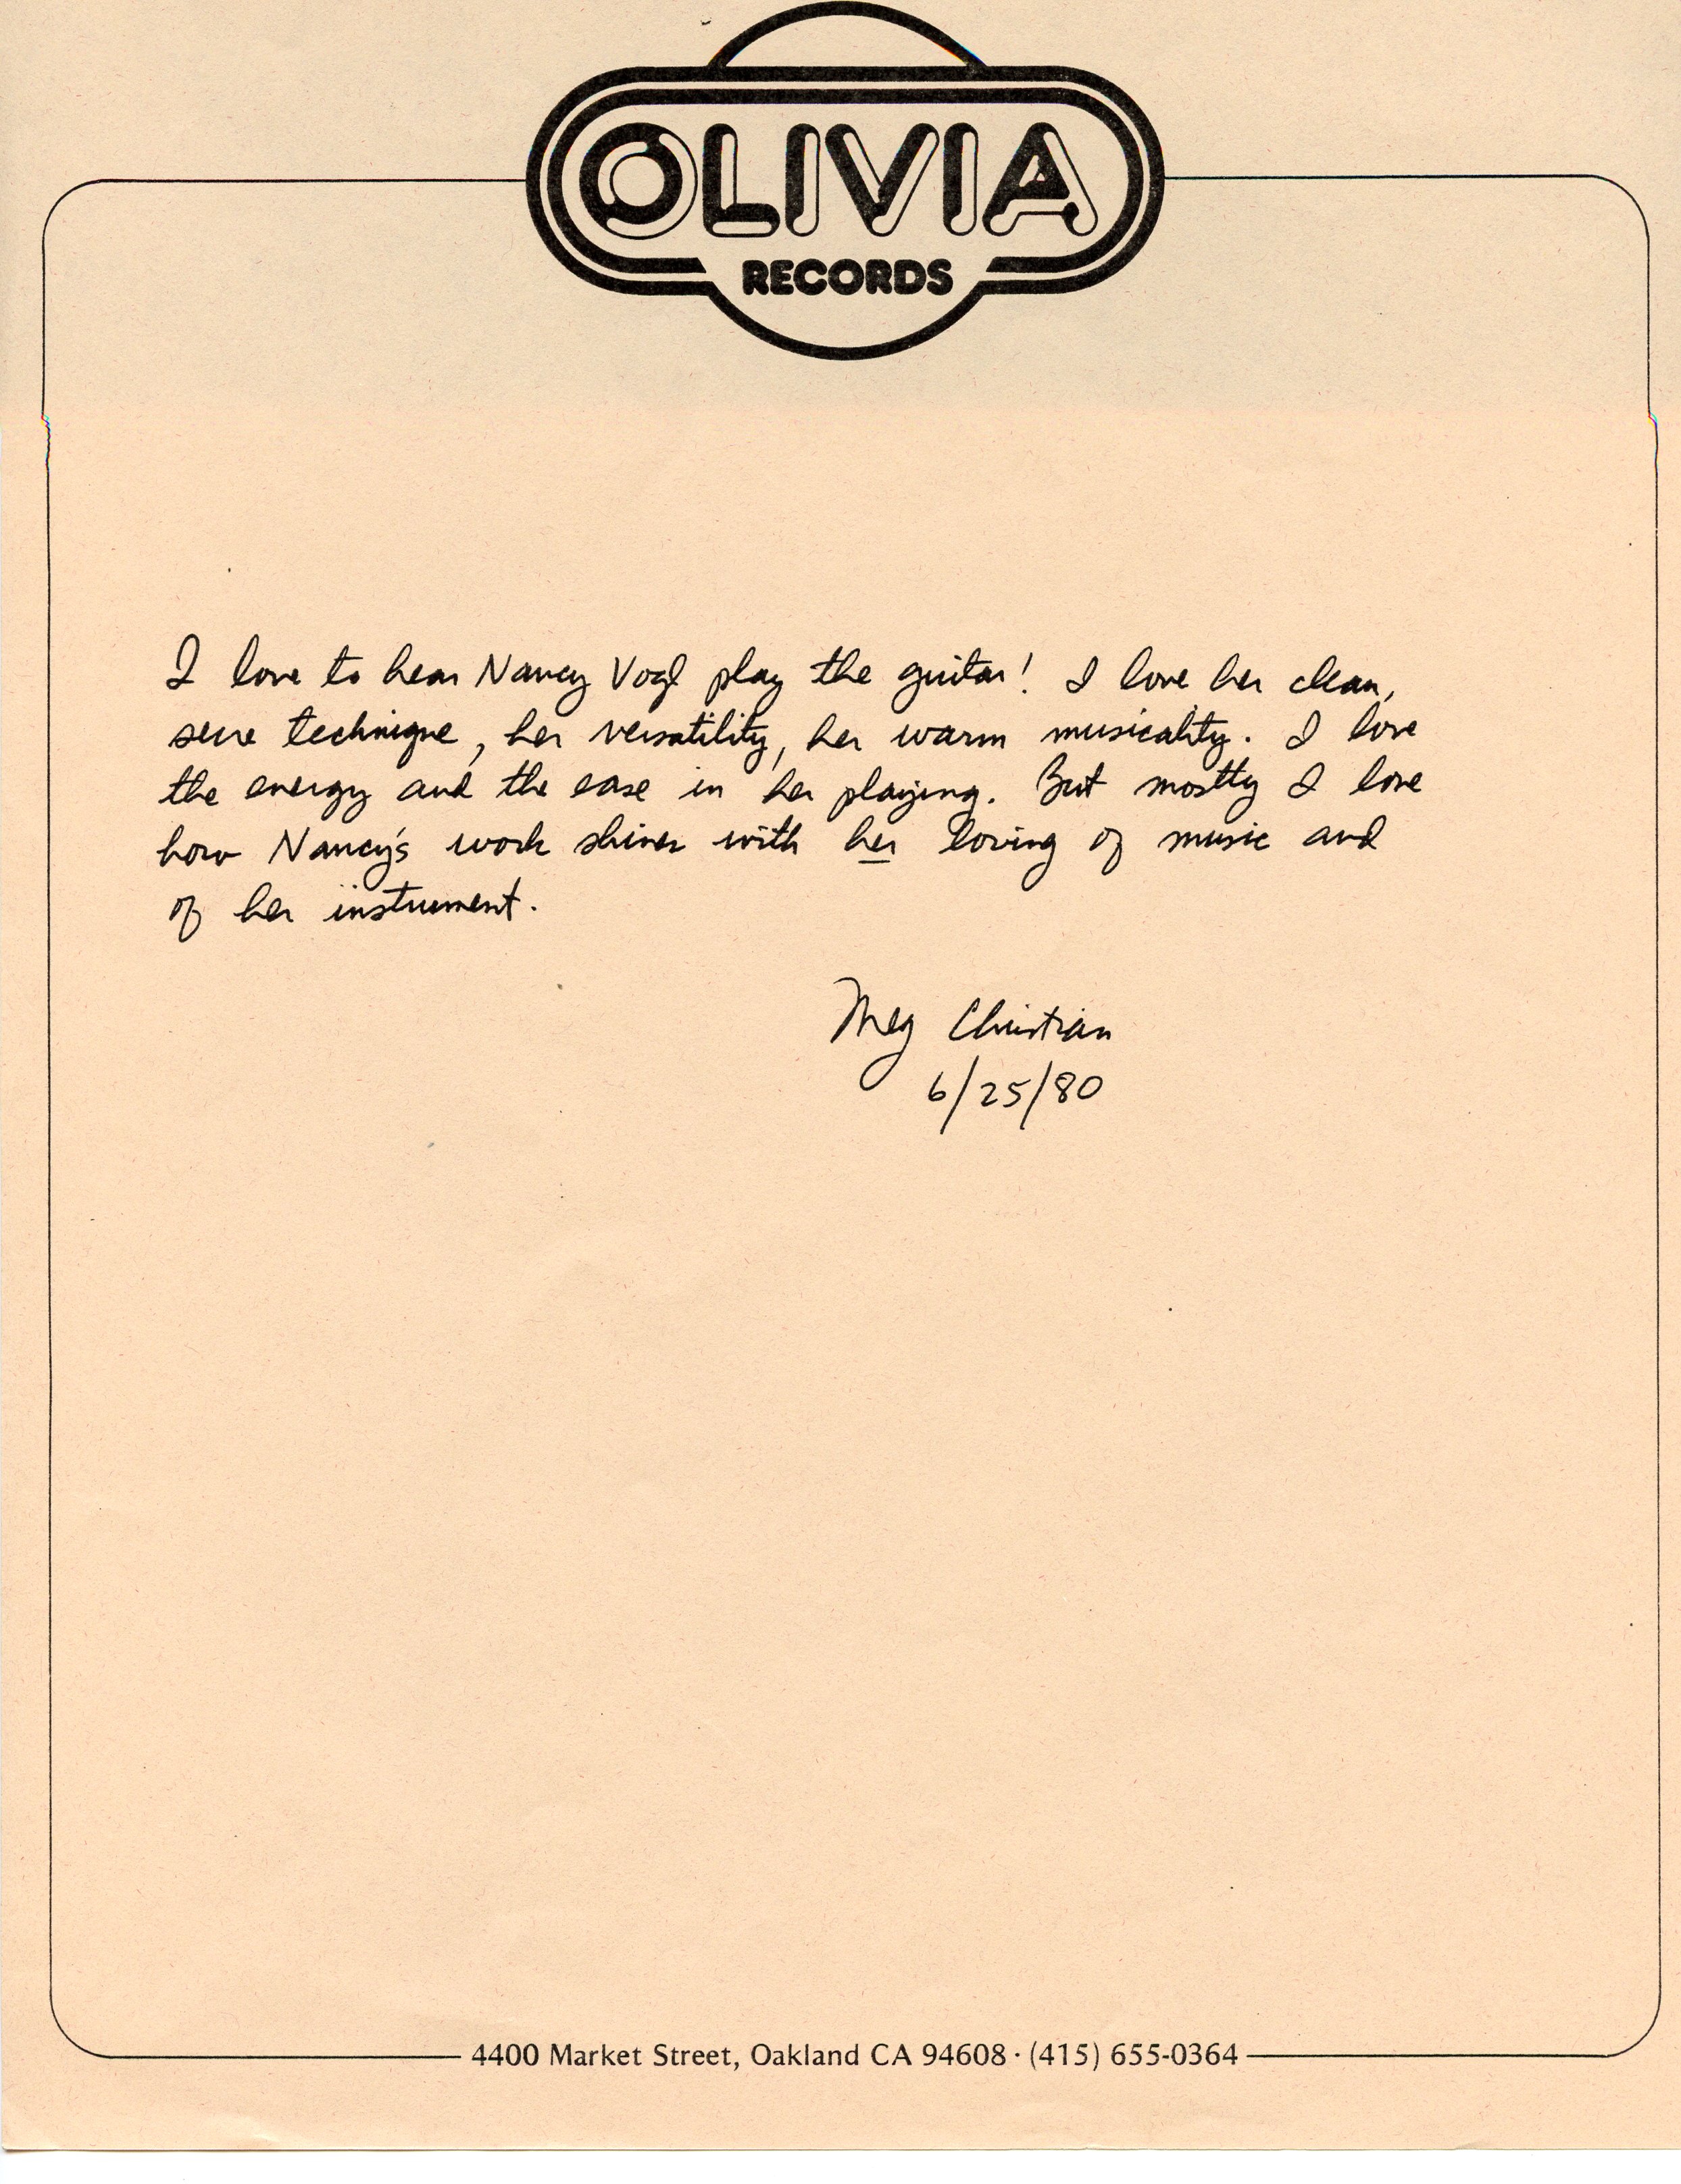 OLIVIA
RECORDS
I love to hear Nancy Vogl play the guitar! I love her clean,
sure technique, her versatility, her warm musicality. I love
the energy and the ease in her playing. But mostly I love
how Nancy's work shines with her loving of music and
of her instrument.
Meg Christian
6/25/80
4400 Market Street, Oakland CA 94608 · (415) 655-0364